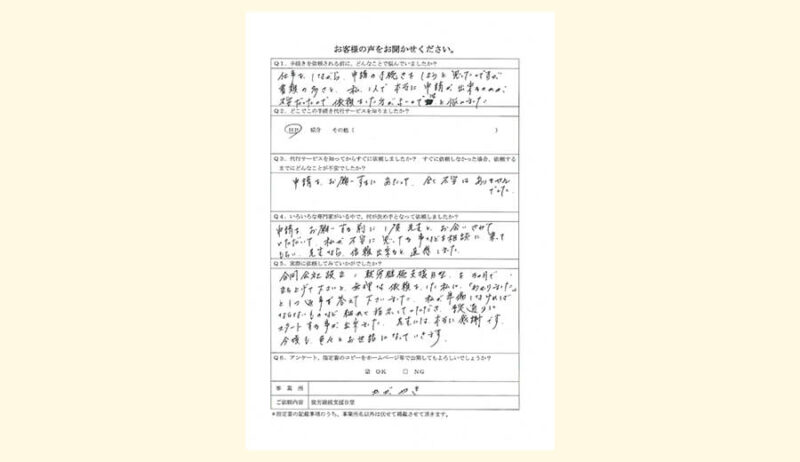 お客様の声をお聞かせください。
Q1．手続きを依頼される前に、どんなことで悩んでいましたか？
仕事をしながら、申請の手続きをしようと思ったのですが
書類の多さと、私1人で本当に申請が出来るのか
不安だったので 依頼をした方が
Q2．どこでこの手続き代行サービスを知りましたか？
HP 紹介 その他（ ）
Q3．代行サービスを知ってからすぐに依頼しましたか？ すぐに依頼しなかった場合、依頼する
までにどんなことが不安でしたか？
申請を、お願いするにあたって、全く不安はありません
でした。
Q4．いろいろな専門家がいる中で、何が決め手となって依頼しましたか？
申請をお願いする前に1度先生と、お会いさせて
いただいて、私が不安に思ってる事などを相談に乗って
もらい、先生なら、信頼出来ると
Q5．実際に依頼してみていかがでしたか？
合同会社設立、就労継続支援B型、を
立ち上げて下さいと、無理な依頼をした私に、「わかりました」
と1つ返事で答えて下さいました。私が準備しなければ
ならないものなど細めに指示していただき、予定通りに
スタートする事が出来ました。先生には本当に感謝です。
今後も、色々とお世話になっていきます。
Q6．アンケート、指定書のコピーをホームページ等で公開してもよろしいでしょうか？
☑ OK ☐ NG
事業所 かがやき
ご依頼内容 就労継続支援B型
＊指定書の記載事項のうち、事業所名以外は伏せて掲載させて頂きます。